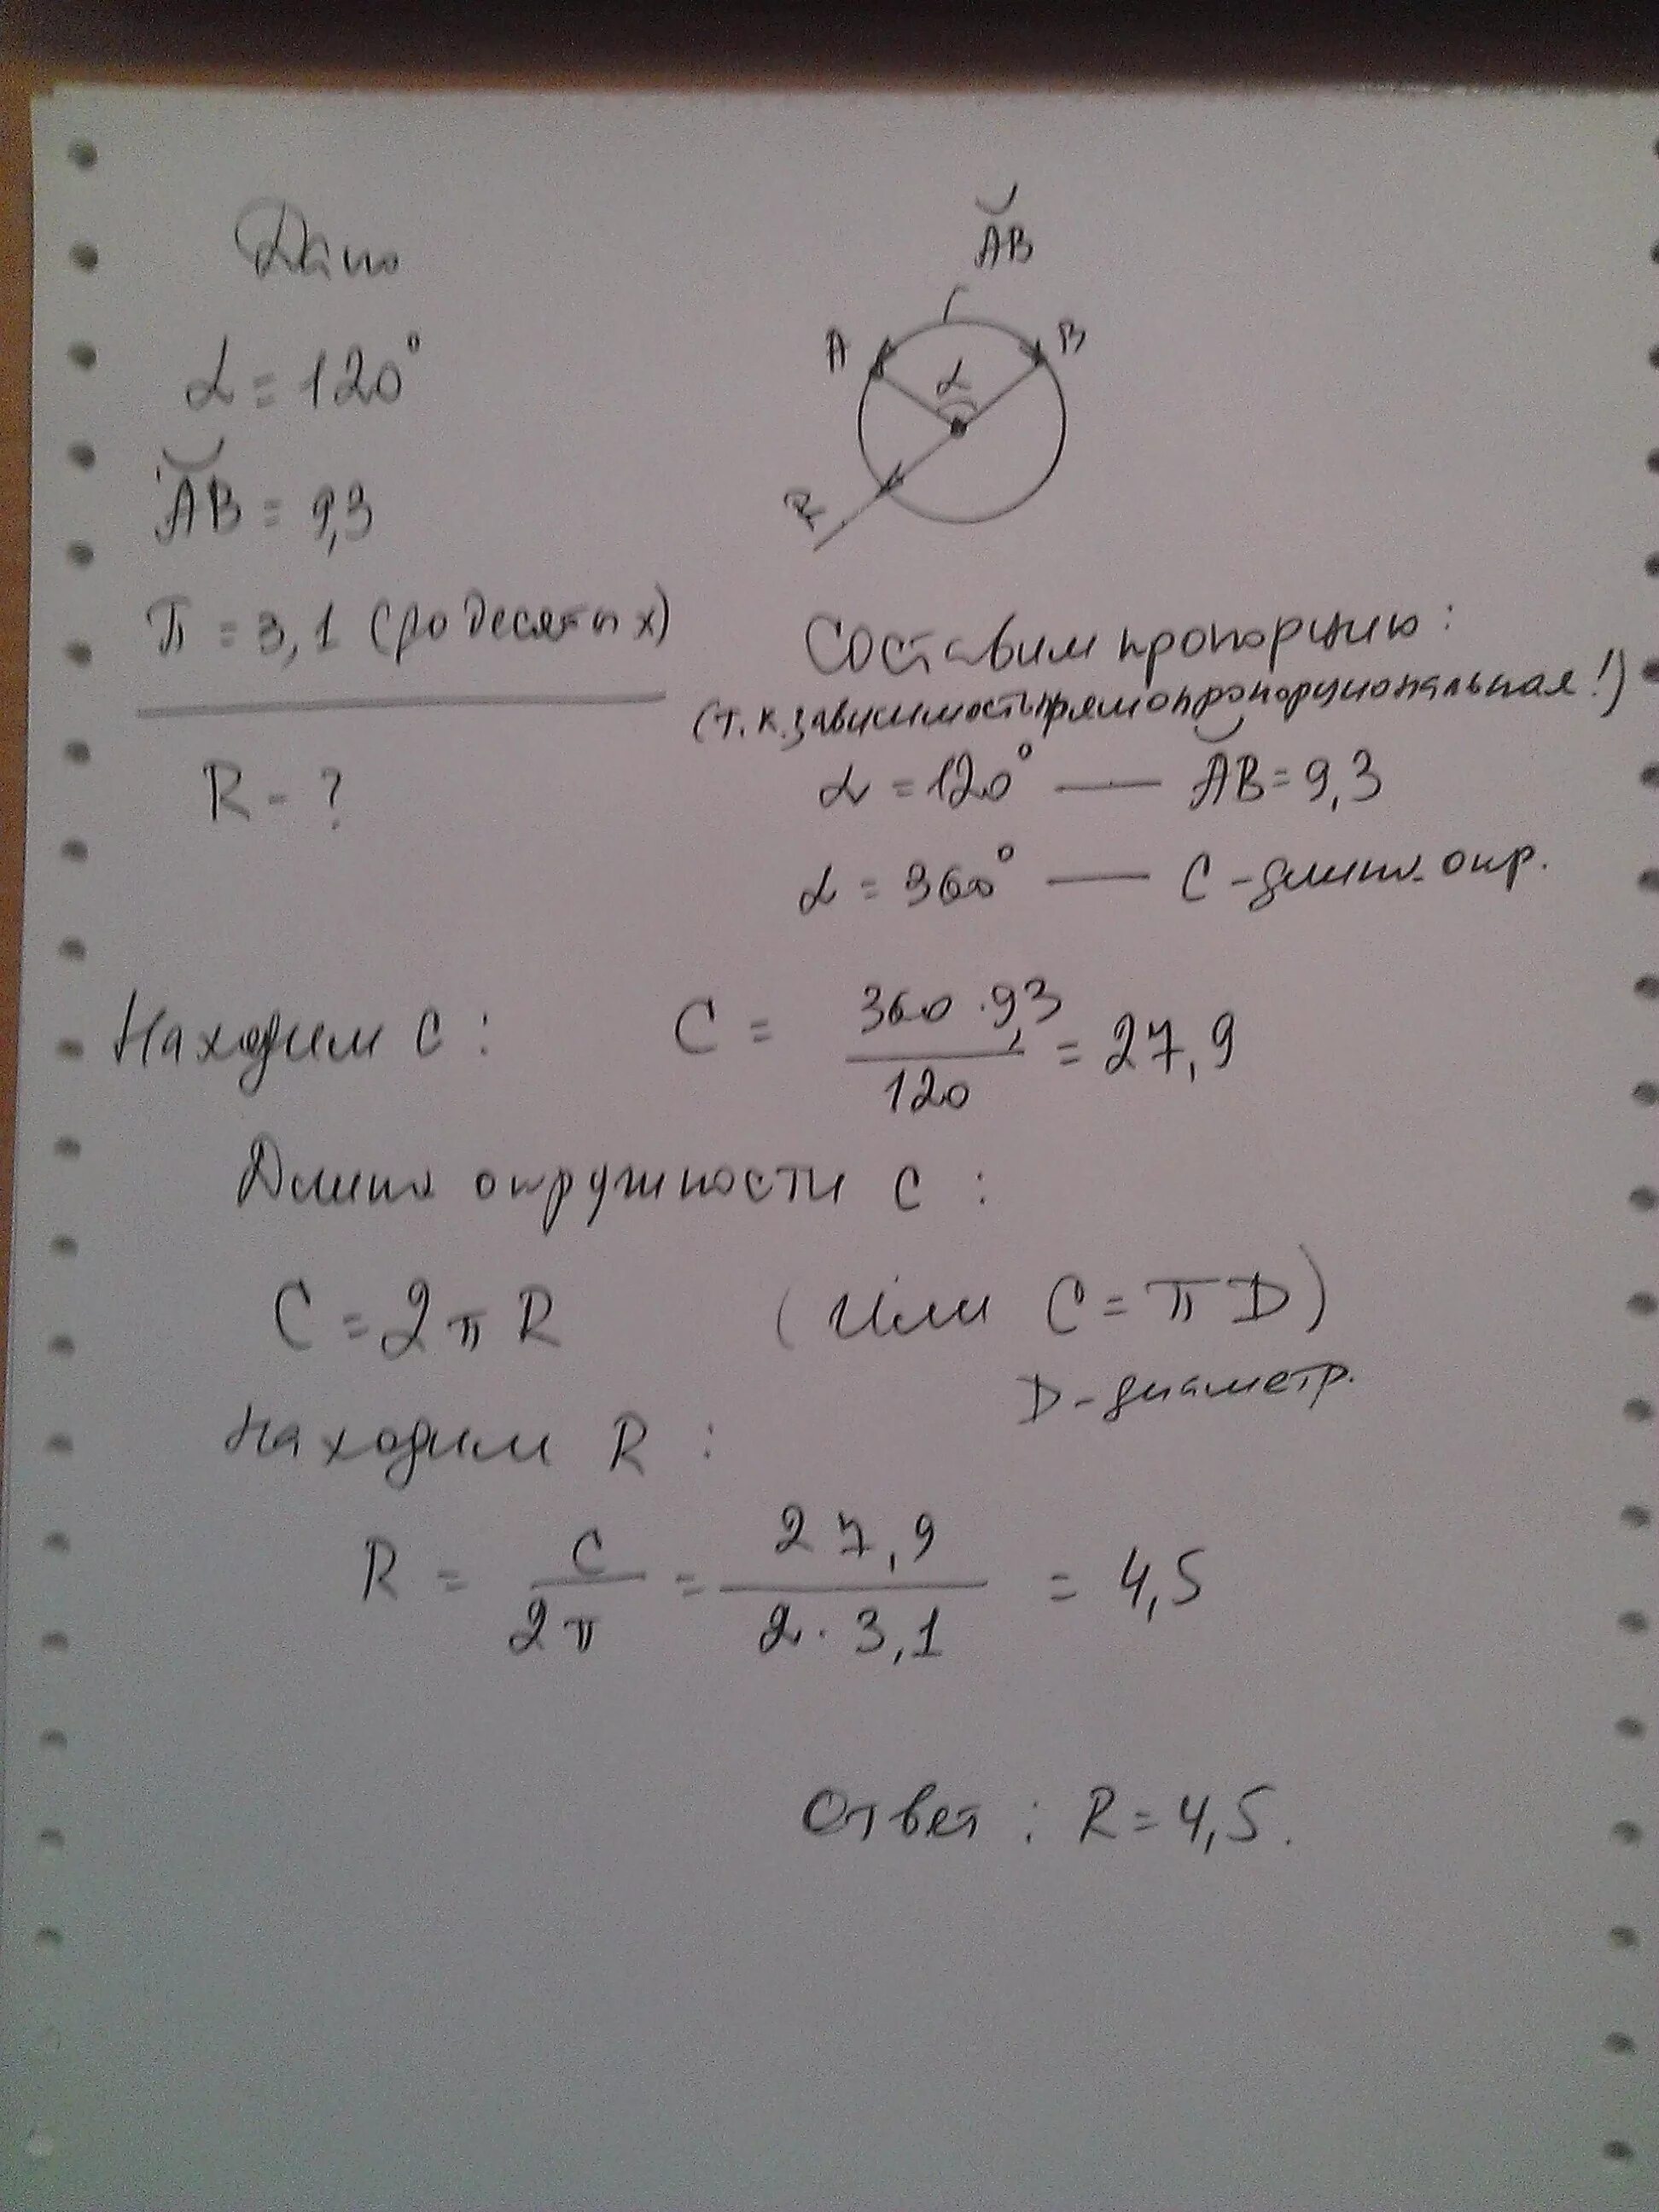 Дано
◡
AB
A
B
α
R
α = 120°
◡
AB = 9,3
π = 3,1 (до десятых)
R - ?
Составим пропорцию:
(т.к. зависимость прямопропорциональная!)
α = 120° — ◡AB = 9,3
α = 360° — C - длина окр.
Находим C: C = 360 · 9,3 / 120 = 27,9
Длина окружности C:
C = 2πR (Или C = πD)
D - диаметр.
Находим R:
R = C / 2π = 27,9 / 2 · 3,1 = 4,5
Ответ: R = 4,5.